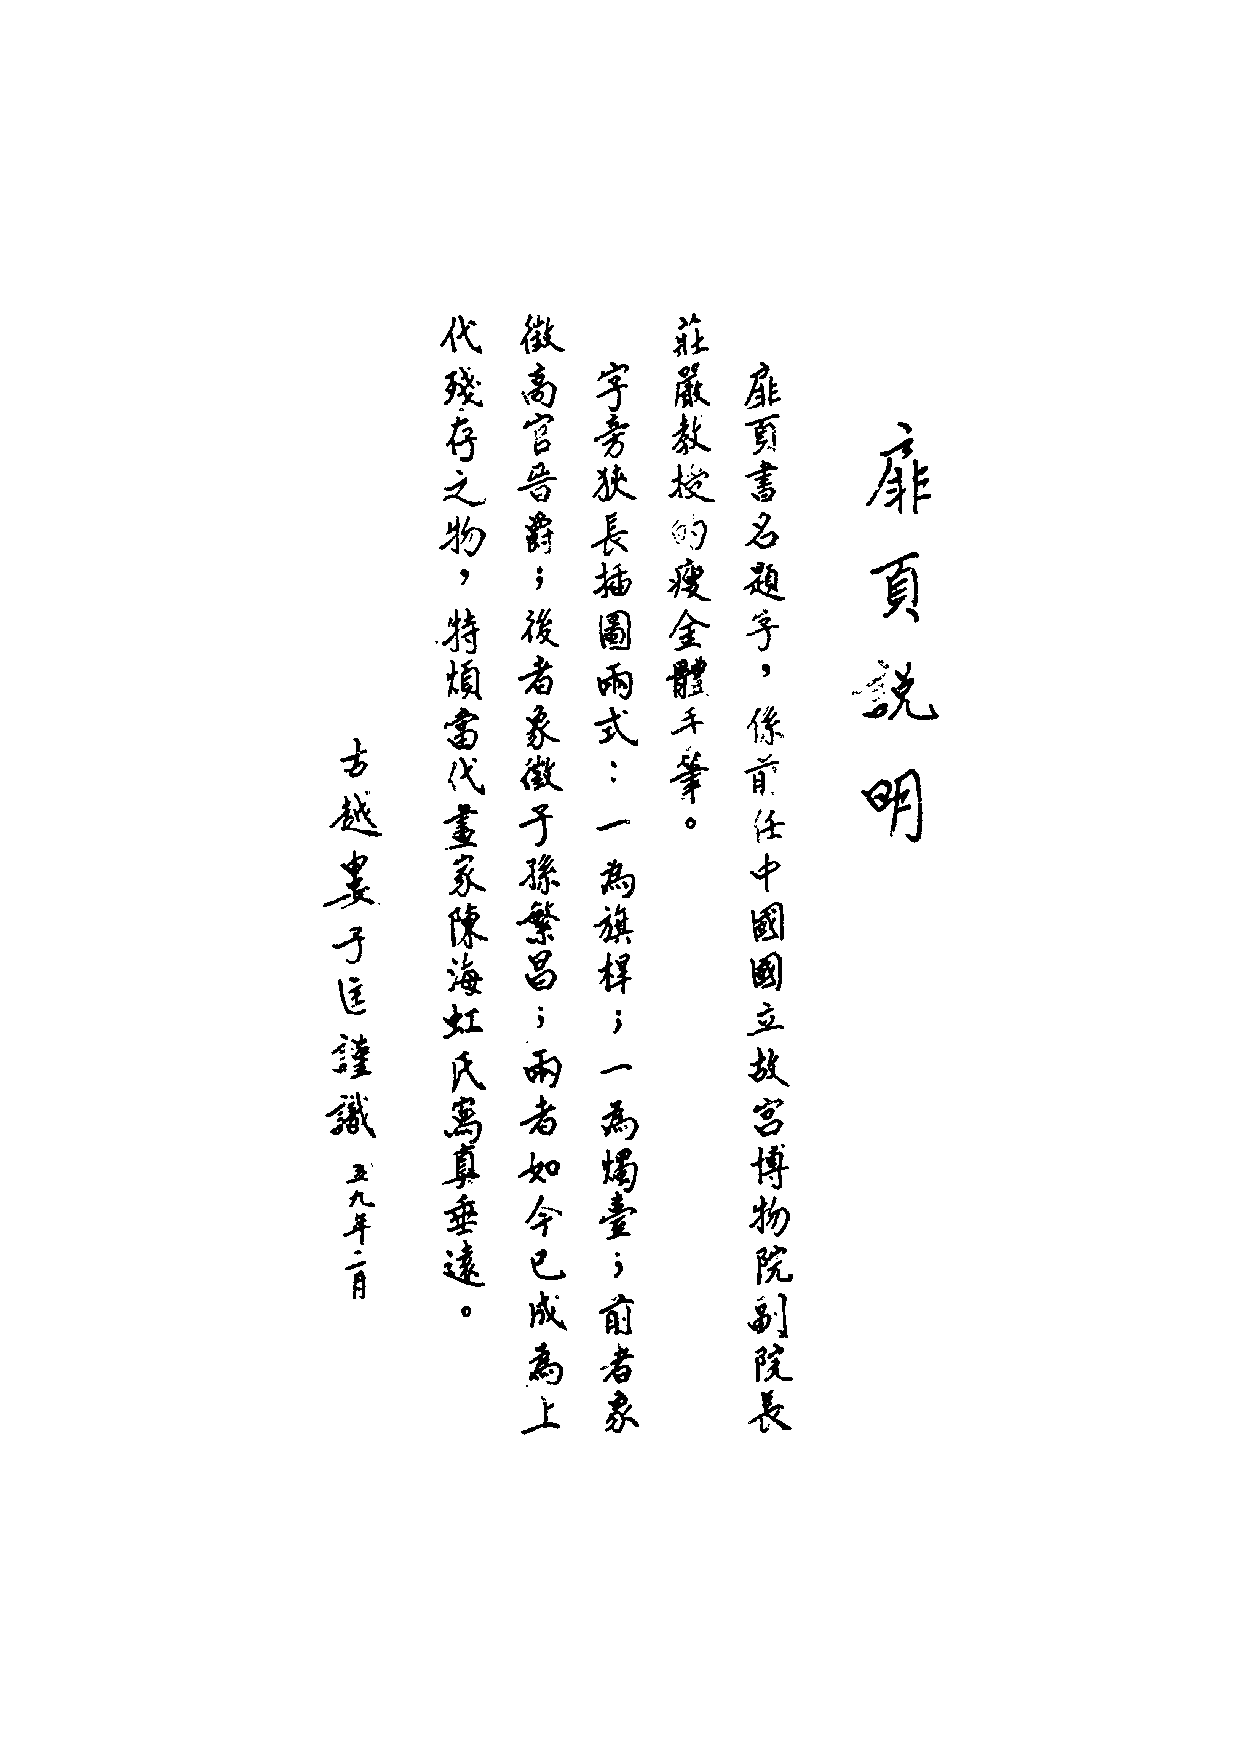 扉頁説明
扉頁書名題字，係前任中國國立故宮博物院副院長
莊嚴教授的瘦金體手筆。
字旁狹長插圖兩式：一為旗桿；一為燭臺；前者象
徵高官晉爵；後者象徵子孫繁昌；兩者如今已成為上
代殘存之物，特煩當代畫家陳海虹氏寫真垂遠。
古越婁子匡謹識 五九年二月